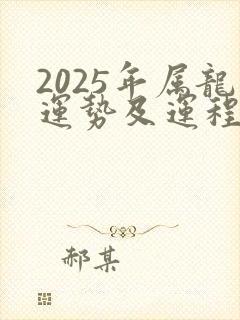 2025年属龍
運勢及運程
郝某